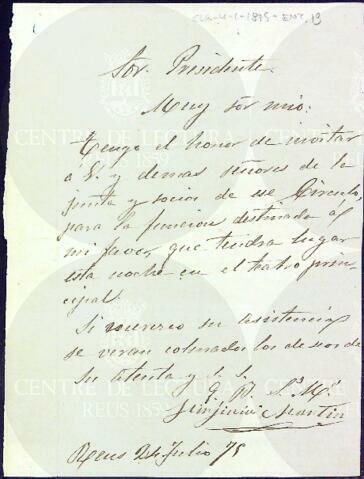 Sor. Presidente.
Muy sor mio:
Tengo el honor de invitar
á V. y demas señores de la
junta y socios de ese Circulo,
para la funcion destinada á
mi favor, que tendrá lugar
esta noche en el teatro prin-
cipal.
Si merezco su asistencia
se veran colmados los deseos de
su atenta y S. S.
Q. B. S. M.
Martin
Reus 24 Julio 75
CENTRE DE LECTURA
REUS 1859
CENTRE DE LECTURA
REUS 1859